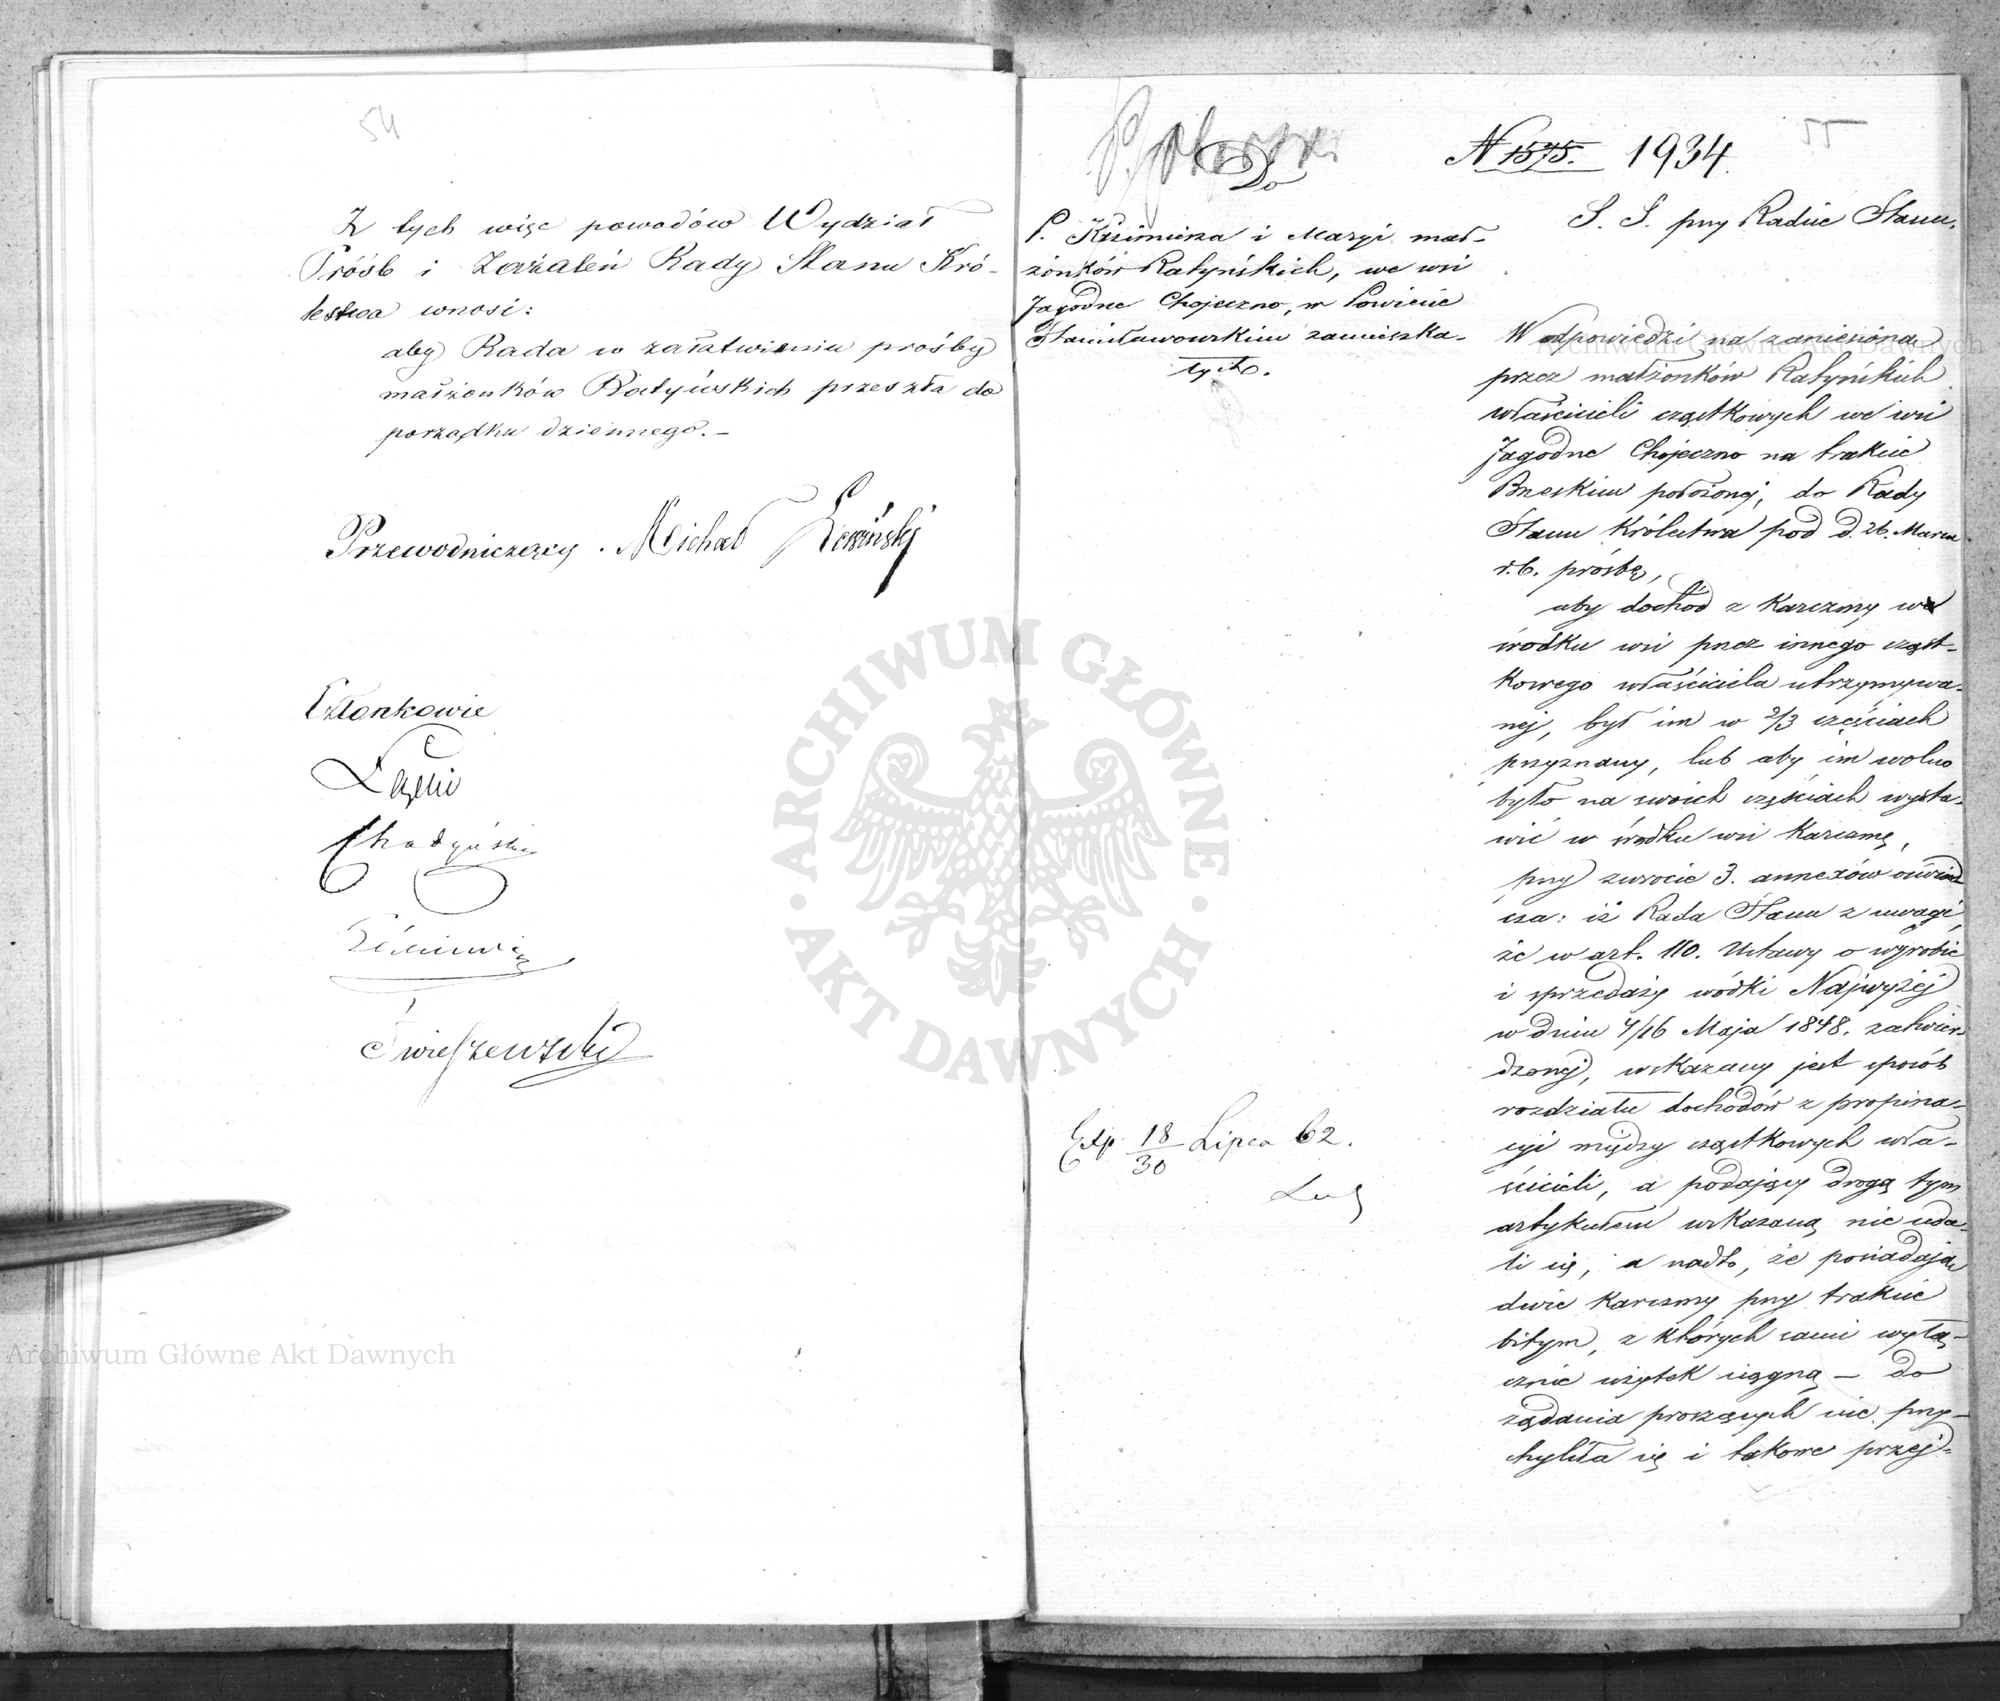 54
Z tych więc powodów Wydział
Próśb i Zażaleń Rady Stanu Kró-
lestwa wnosi:
aby Rada w załatwieniu prośby
małżonków Ratyńskich przeszła do
porządku dziennego. –
Przewodniczący. Michał
Członkowie
Łęski
Chądzyński
Świeszewski
Archiwum Główne Akt Dawnych
55
Do
N 1575. 1934.
P. Kazimierza i Maryi mał-
żonków Ratyńskich, we wsi
Jagodne Chojeczno, w Powiecie
Stanisławowskim zamieszka-
łych.
S. S. przy Radzie Stanu.
W odpowiedzi na zaniesioną
przez małżonków Ratyńskich
właścicieli cząstkowych we wsi
Jagodne Chojeczno na trakcie
Brzeskim położonej, do Rady
Stanu Królestwa pod d. 26. Marca
r. b. prośbę,
aby dochód z karczmy we
środku wsi przez innego cząst-
kowego właściciela utrzymywa-
nej, był im w 2/3 częściach
przyznany, lub aby im wolno
było na swoich częściach wysta-
wić w środku wsi karczmę,
przy zwrocie 3. annexów oświad
cza: iż Rada Stanu z uwagi,
że w art. 110. Ustawy o wyrobie
i sprzedaży wódki Najwyżej
w dniu 4/16 Maja 1848. zatwier-
dzonej, wskazany jest sposób
rozdziału dochodów z propina-
cyi między cząstkowych wła-
ścicieli, a podający drogą tym
artykułem wskazaną nie uda-
li się, a nadto, że posiadają
dwie karczmy przy trakcie
bitym, z których sami wyłą-
cznie użytek ciągną – do
żądania proszących nie przy-
chyliła się i takowe przej-
Exp. 18/30 Lipca 62.
Archiwum Główne Akt Dawnych
ARCHIWUM GŁÓWNE AKT DAWNYCH